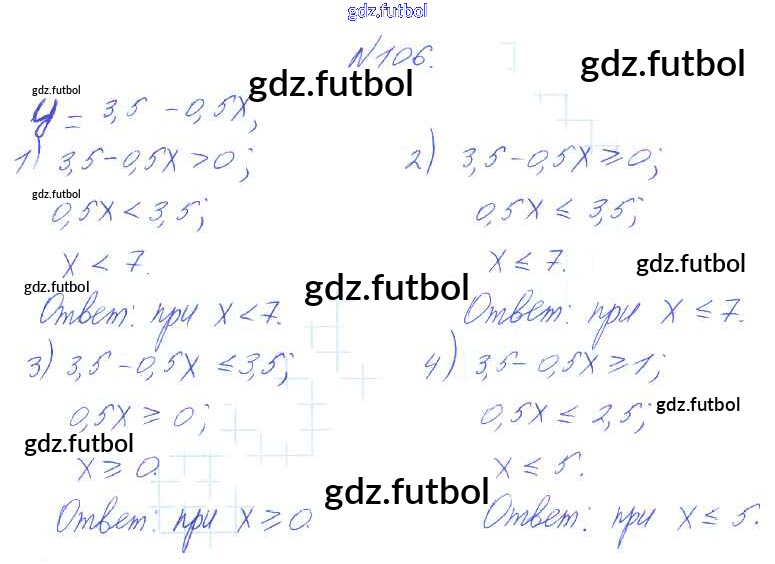 gdz.futbol
№106.
gdz.futbol
gdz.futbol
gdz.futbol
y = 3,5 - 0,5x;
1) 3,5 - 0,5x > 0;
gdz.futbol
0,5x < 3,5;
x < 7.
gdz.futbol
gdz.futbol
Ответ: при x < 7.
2) 3,5 - 0,5x ≥ 0;
0,5x ≤ 3,5;
x ≤ 7.
gdz.futbol
Ответ: при x ≤ 7.
3) 3,5 - 0,5x ≤ 3,5;
0,5x ≥ 0;
gdz.futbol
x ≥ 0.
gdz.futbol
Ответ: при x ≥ 0.
4) 3,5 - 0,5x ≥ 1;
gdz.futbol
0,5x ≤ 2,5;
x ≤ 5.
Ответ: при x ≤ 5.